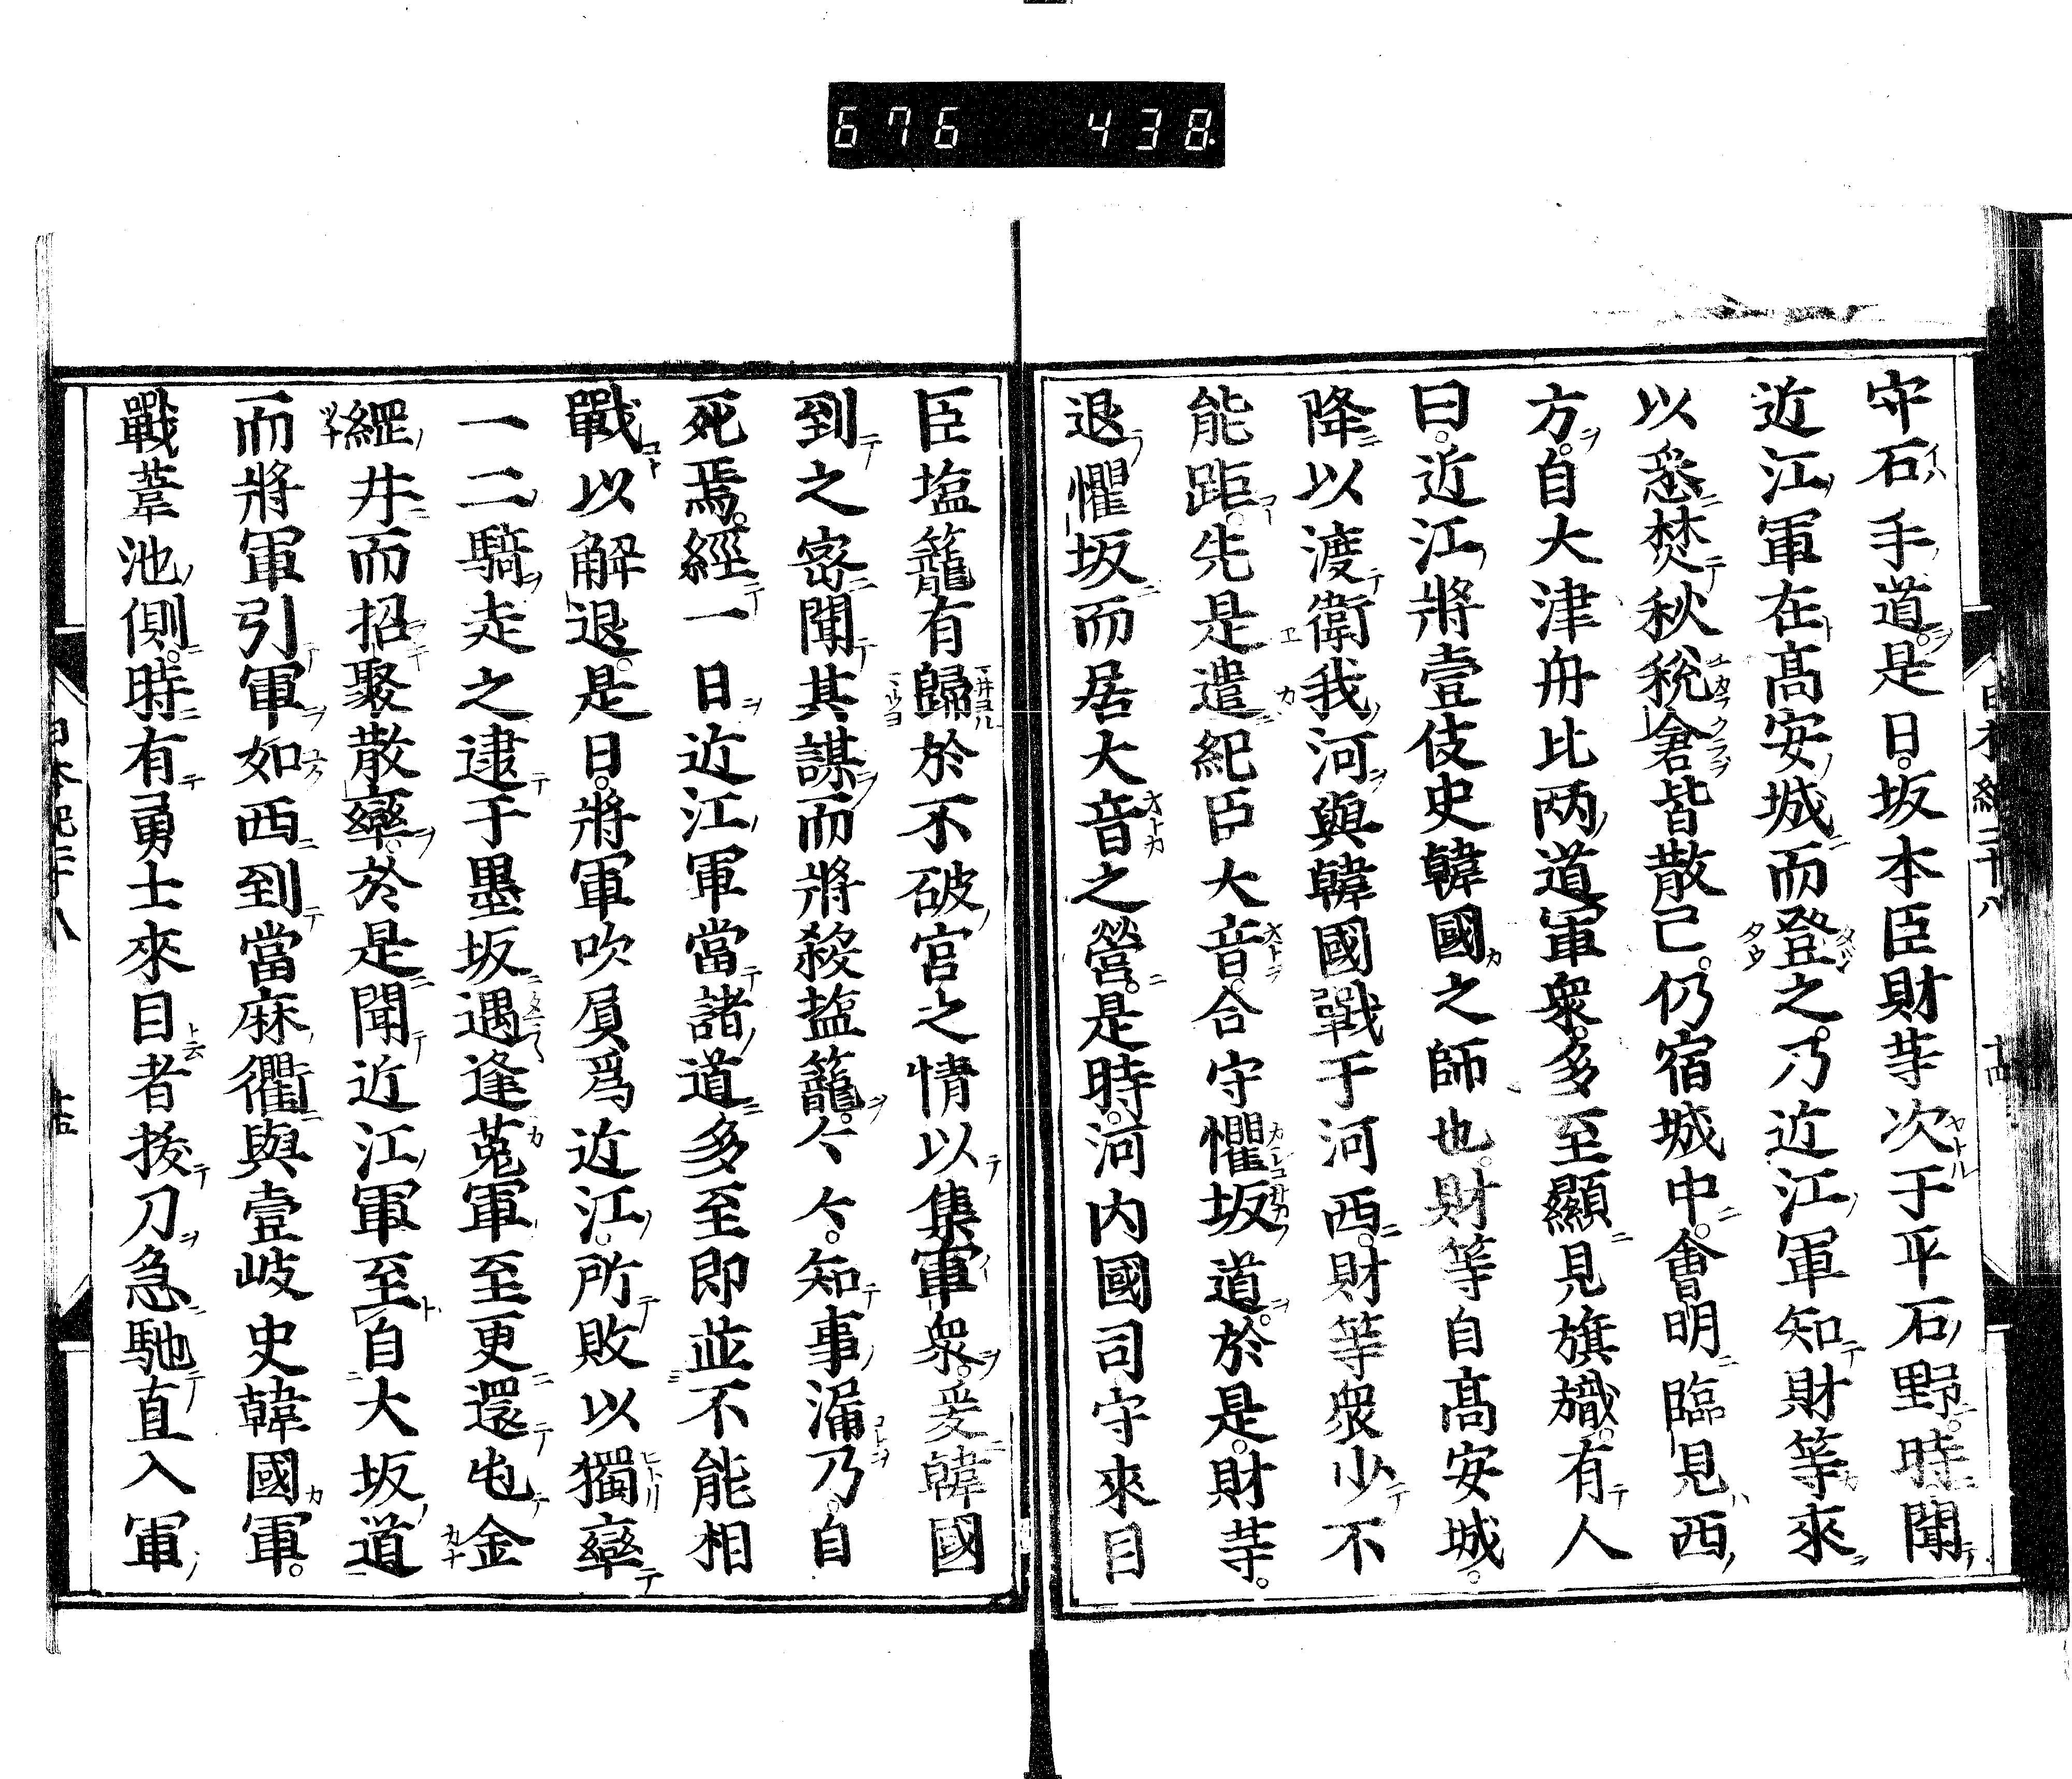 676 438
守石手道是日坂本臣財䓁次于平石野時聞
近江軍在高安城而登之乃近江軍知財等來
以悉焚秋稅倉皆散已仍宿城中會明臨見西
方自大津丹比兩道軍衆多至顯見旗䵅有人
曰近江將壹伎史韓國之師也財等自高安城
降以渡衛我河與韓國戰于河西財等衆少不
能距先是遣紀臣大音合守懼坂道於是財䓁
退懼坂而居大音之營是時河内國司守來目
臣塩籠有歸於不破宮之情以集軍衆爰韓國
到之密聞其謀而將殺塩籠々々知事漏乃自
死焉經一日近江軍當諸道多至即並不能相
戰以解退是日將軍吹負爲近江所敗以獨率
一二騎走之逮于墨坂遇逢菟軍至更還屯金
綱井而招聚散卒於是聞近江軍至自大坂道
而將軍引軍如西到當麻衢與壹岐史韓國軍
戰葦池側時有勇士來目者拔刀急馳直入軍